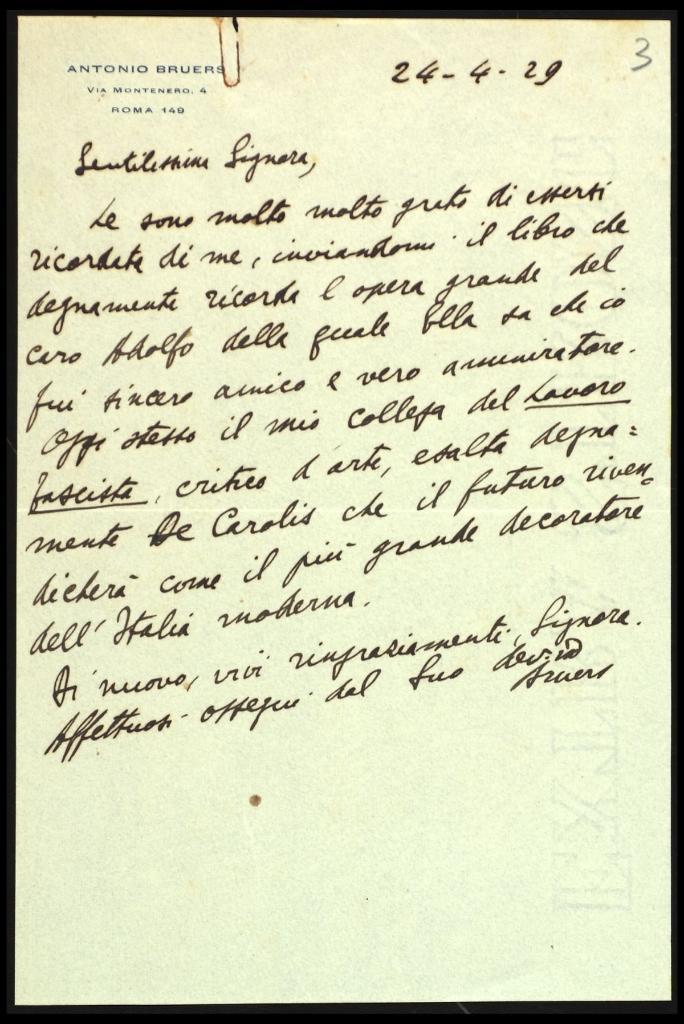 ANTONIO BRUERS
VIA MONTENERO, 4
ROMA 149
24-4-29
3
Gentilissima Signora,
Le sono molto molto grato di essersi
ricordata di me, inviandomi il libro che
degnamente ricorda l'opera grande del
caro Adolfo della quale Ella sa che io
fui sincero amico e vero ammiratore.
Oggi stesso il mio collega del Lavoro
fascista, critico d'arte, esalta degna=
mente De Carolis che il futuro riven=
dicherà come il più grande decoratore
dell'Italia moderna.
Di nuovo, vivi ringraziamenti, Signora.
Affettuosi ossequi dal Suo dev.mo
Bruers